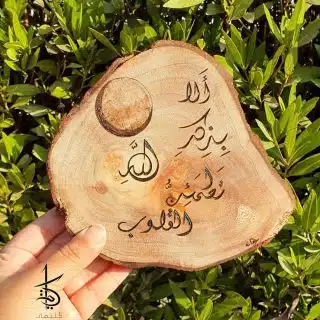 أَلَا
بِذِكْرِ
اللَّهِ
تَطْمَئِنُّ
القُلُوب